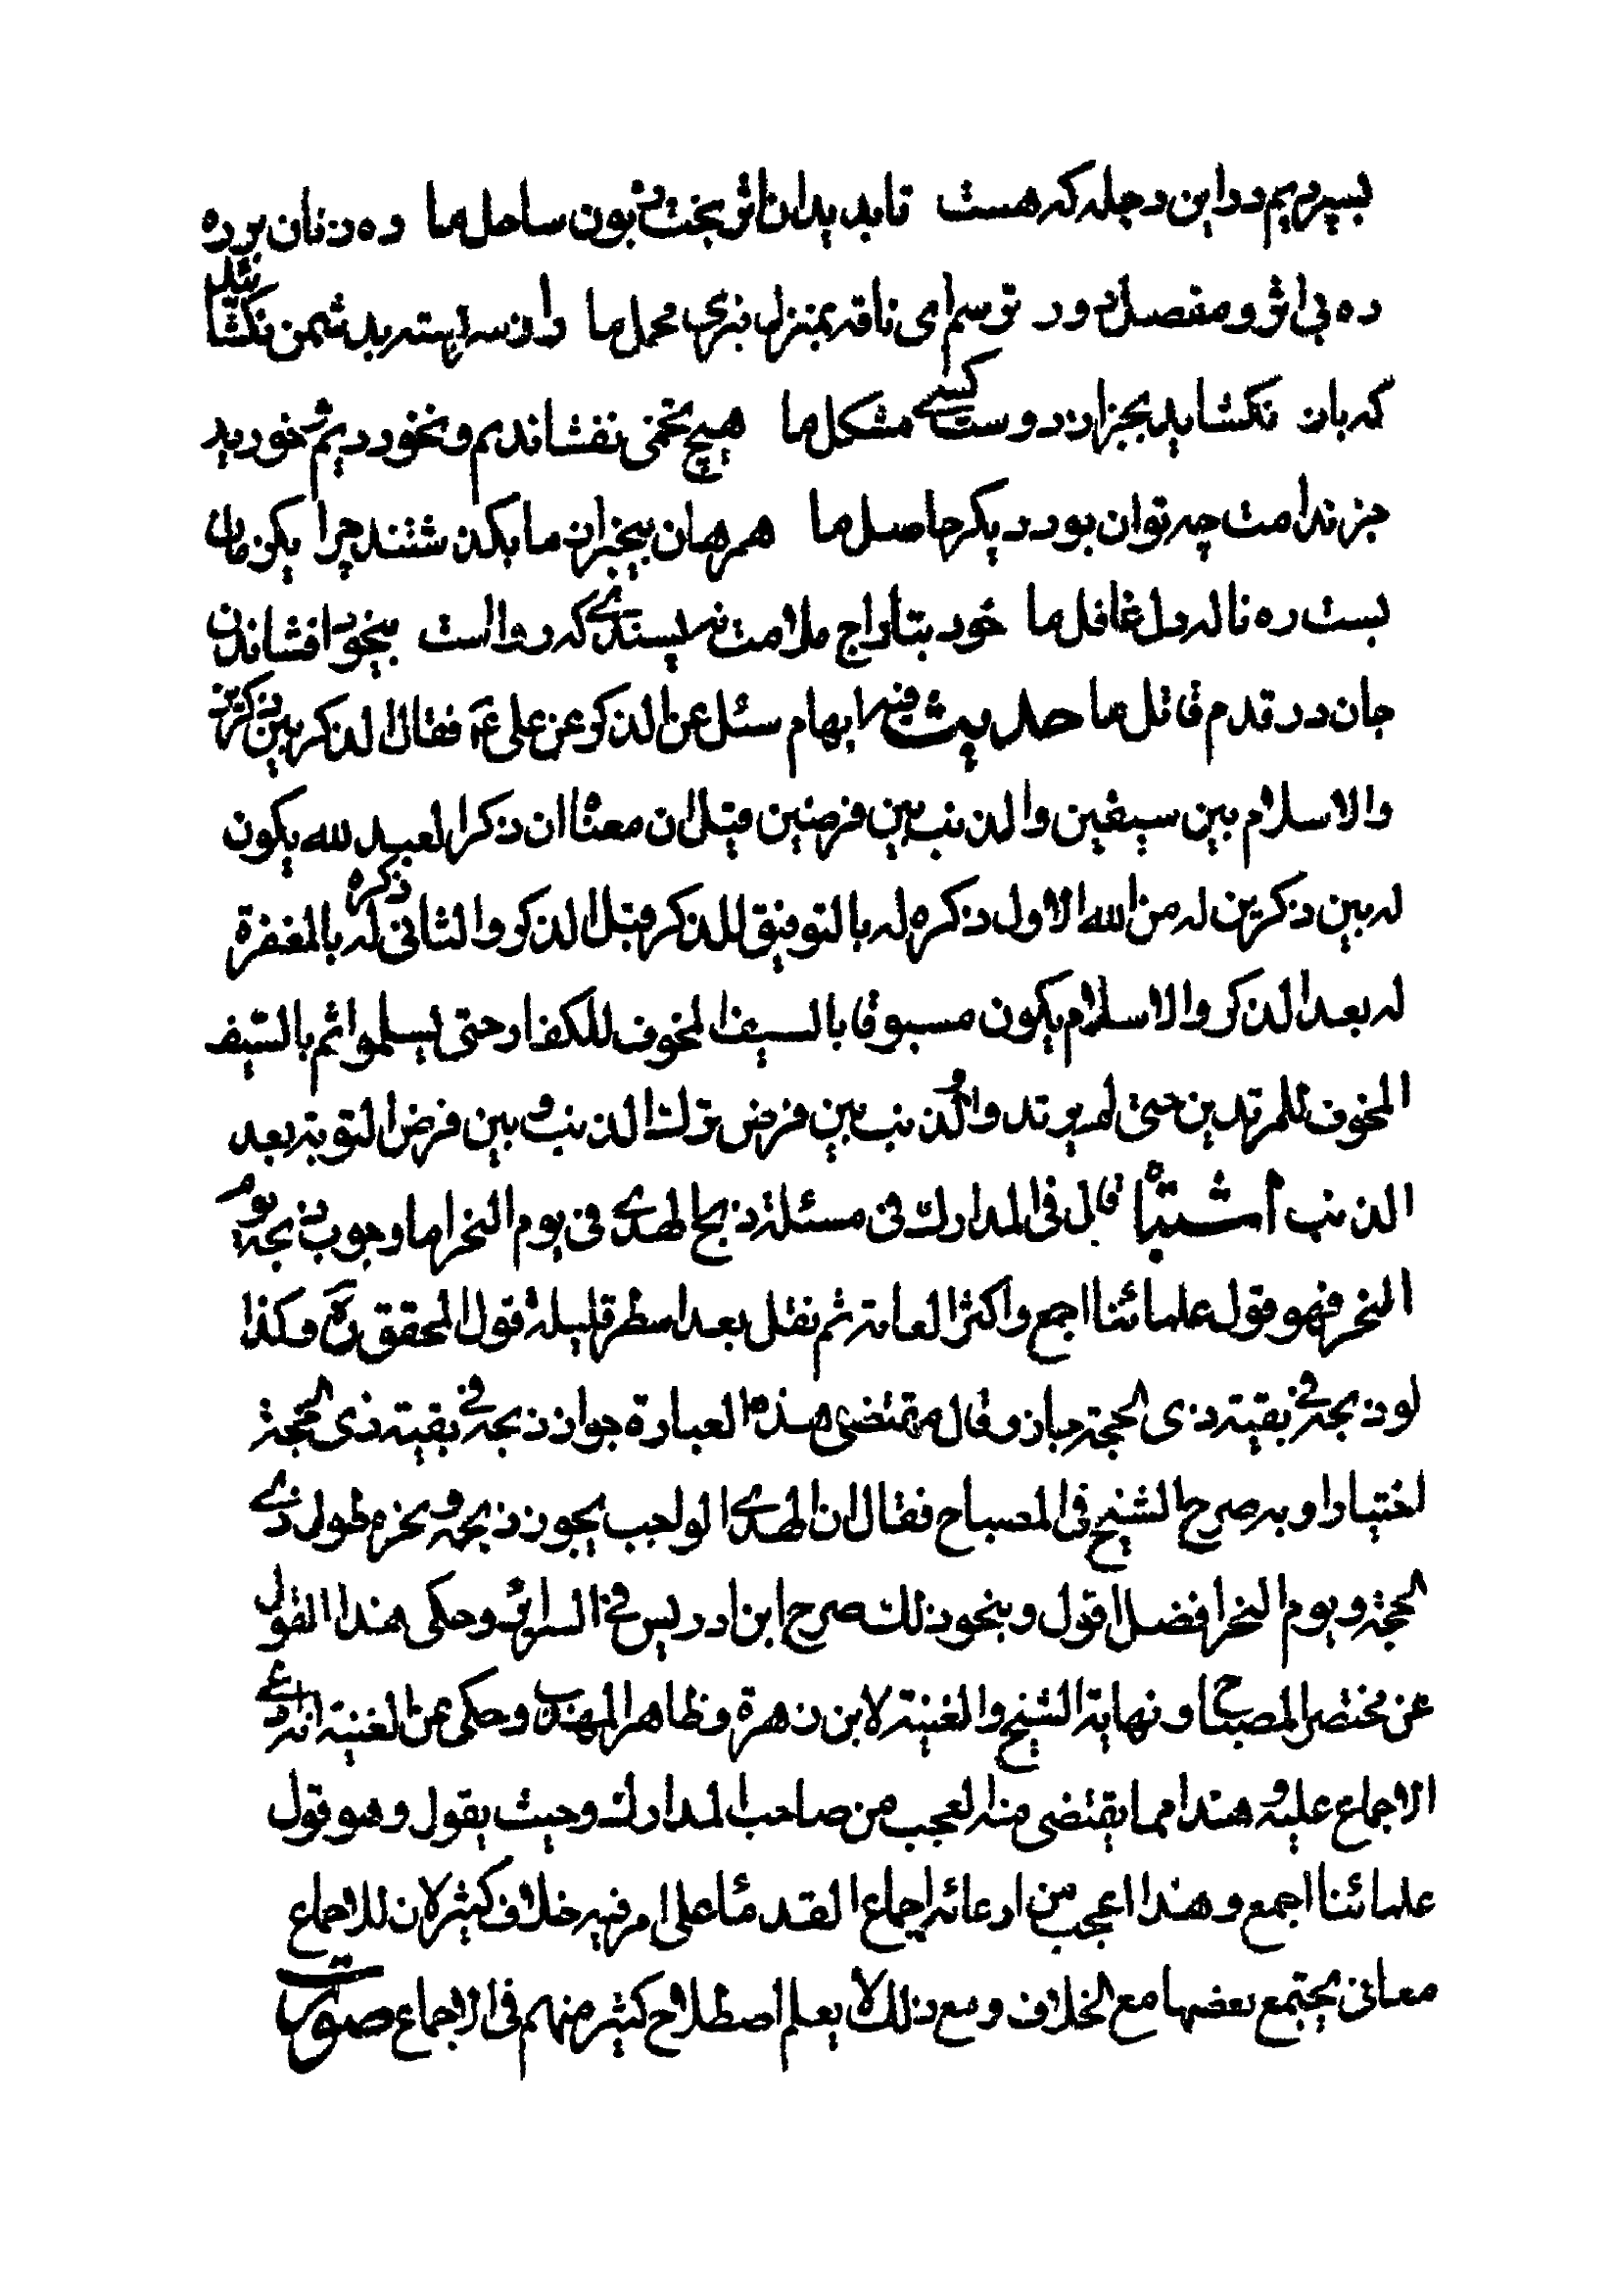 بسپردیم در این دجله که هست تا بدیدان اثر بخت زبون ساحل ما ره زنان بر ره
ره بی اثر و منزل دور ترسم ای ناقه بمنزل نبری محمل ما راز سر بسته بدشمن نگشائید
که باز نگشاید بجز از دوست کسے مشکل ما هیچ تخمی نفشاندیم و نخوردیم ثمر خورید
جز ندامت چه توان بود دیگر حاصل ما همرهان بیخبر از ما بگذشتند چرا یکزمان
بست ره ناله دل غافل ما خود بتاراج ملامت نه پسندے که رواست بیخود افشاندن
جان در قدم قاتل ما حدیث فیه ابهام سئل عن الذکر عن علی ع فقال الذکر بین ذکرین
والاسلام بین سیفین والذنب بین فرضین قیل ان معناه ان ذکر العبد لله یکون
له بین ذکرین له من الله الاول ذکره له بالتوفیق للذکر قبل الذکر والثانی ذکره له بالمغفرة
له بعد الذکر والاسلام یکون مسبوقا بالسیف المخوف للکفار حتی یسلموا ثم بالسیف
المخوف للمرتدین حتی لم یرتد والذنب بین فرض ترك الذنب وبین فرض التوبة بعد
الذنب اشتباه قال فی المدارك فی مسئلة ذبح الهدے فی یوم النحر اما وجوب ذبحه یوم
النحر فهو قول علمائنا اجمع واکثر العامة ثم نقل بعد اسطر قلیلة قول المحقق ره وکذا
لو ذبحه فی بقیة ذی الحجة جاز وقال مقتضی هذه العبارة جواز ذبحه فی بقیة ذی الحجة
اختیارا وبه صرح الشیخ فی المصباح فقال ان الهدے الواجب یجوز ذبحه ونحره طول ذے
الحجة ویوم النحر افضل اقول وبنحو ذلك صرح ابن ادریس فی السرائر وحکی هذا القول
عن مختصر المصباح ونهایة الشیخ والغنیة لابن زهرة وظاهر المهذب وحکی عن الغنیة انه ادعے
الاجماع علیه وهذا مما یقتضی منه العجب من صاحب المدارك وحیث یقول وهو قول
علمائنا اجمع وهذا اعجب من ادعائه اجماع القدماء علی امر فیه خلاف کثیر لان للاجماع
معانی یجتمع بعضها مع الخلاف ومع ذلك لا یعلم اصطلاح کثیر منهم فی الاجماع صورت